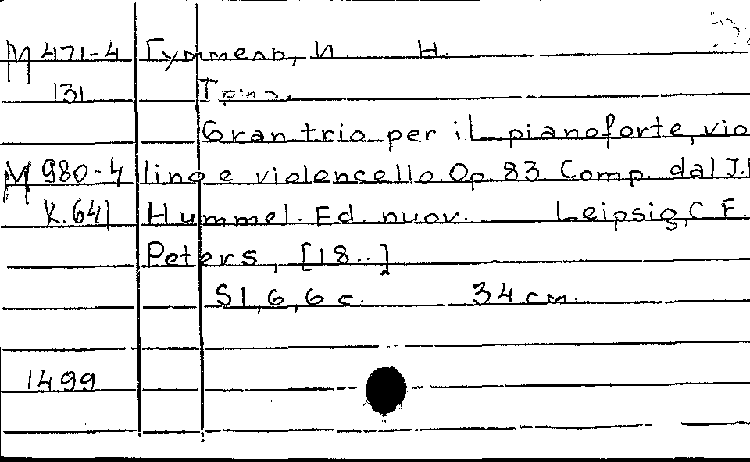 М 471-4 Гуммель, И. Н.
131 Трио.
Gran trio per il pianoforte, vio
М 980-4 lino e violoncello Op. 83 Comp. dal J.
К.641 Hummel. Ed. nuov. — Leipsig, C. F.
Peters, [18..]
51, 6, 6 с. 34 см.
1499